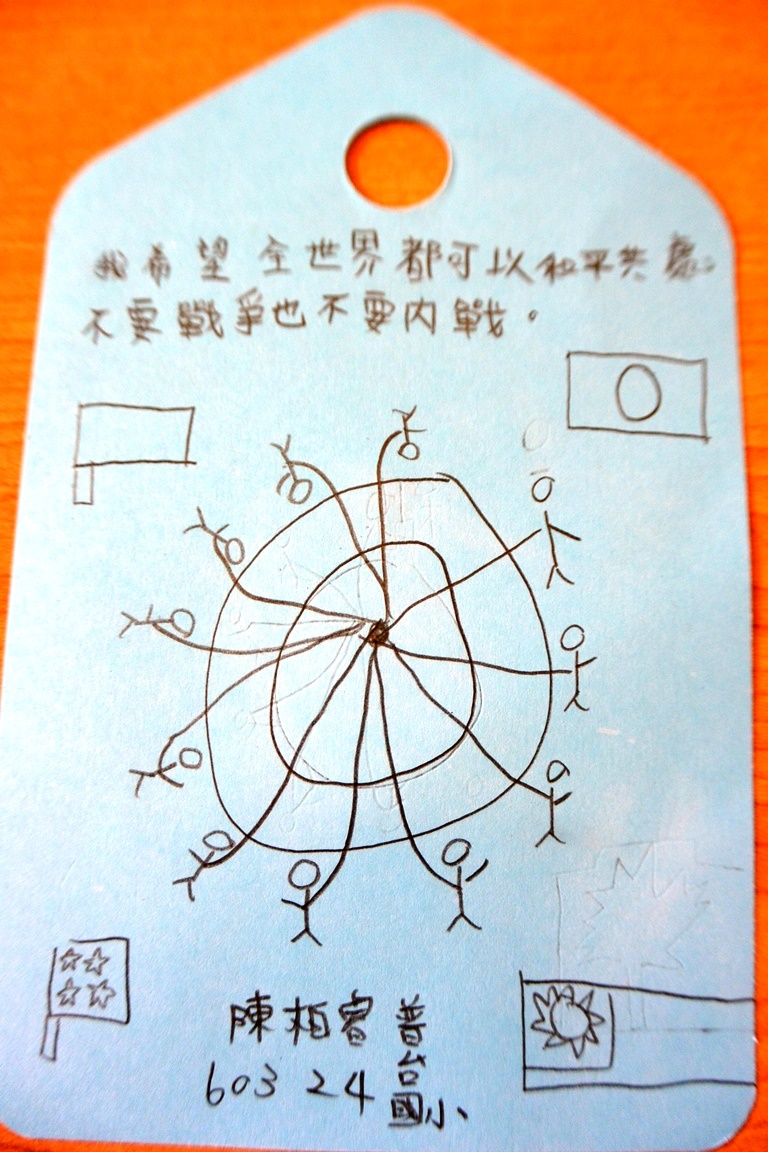 我希望全世界都可以和平共處。
不要戰爭也不要內戰。
陳柏睿
603 24
普台國小